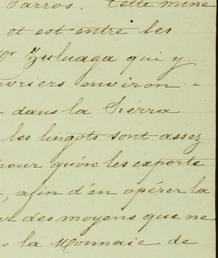 Parros. Cette mine
et est entre les
Mr Zuluaga qui y
uvriers environ -
dans la Sierra
les lingots sont assez
pour qu'on les exporte
, afin d'en opérer la
des moyens que ne
la Monnaie de